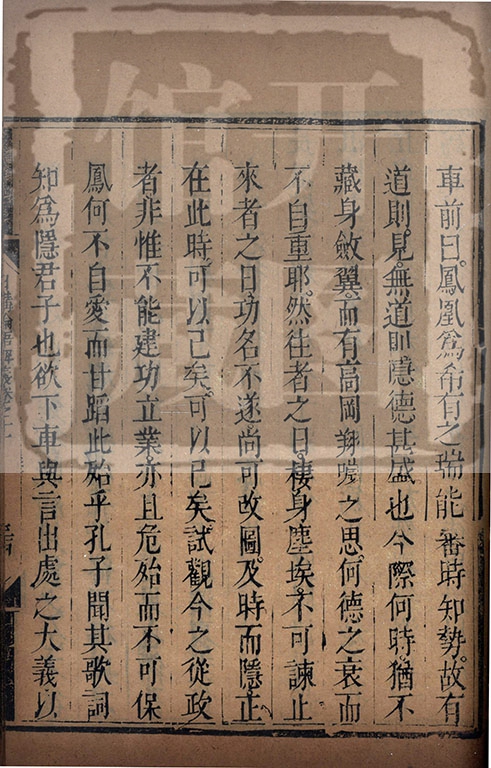 車前曰。鳳凰爲希有之瑞能審時知勢。故有
道則見。無道則隱德甚盛也今際何時。猶不
藏身斂翼。而有高岡翔噦之思。何德之衰而
不自重耶。然往者之日。棲身塵埃。不可諫止
來者之日。功名不遂。尚可改圖。及時而隱正
在此時。可以已矣。可以已矣。試觀今之從政
者非惟不能建功立業亦且危殆而不可保
鳳何不自愛而甘蹈此殆乎孔子聞其歌詞
知爲隱君子也欲下車與言出處之大義以